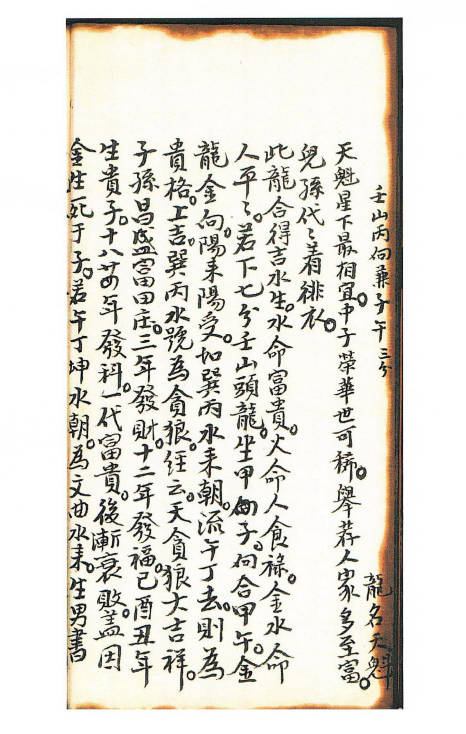 壬山丙向兼子午三分 龍名天魁
天魁星下最相宜。中子榮華世可稱。舉薦人家多至富。
兒孫代〻着緋衣。
此龍合得吉水生。水命富貴。火命人食祿。金水命
人平〻。若下七分壬山頭龍。坐甲子。向合甲午。金
龍金向。陽來陽受。如巽丙水來朝。流午丁去。則為
貴格。上吉。巽丙水號為貪狼。經云。天貪狼大吉祥。
子孫昌盛富田庄。三年發財。十二年發福。巳酉丑年
生貴子。十八廿年發科。一代富貴。後漸衰敗。蓋因
金生死于子。若午丁坤水朝。為文曲水來。生男書